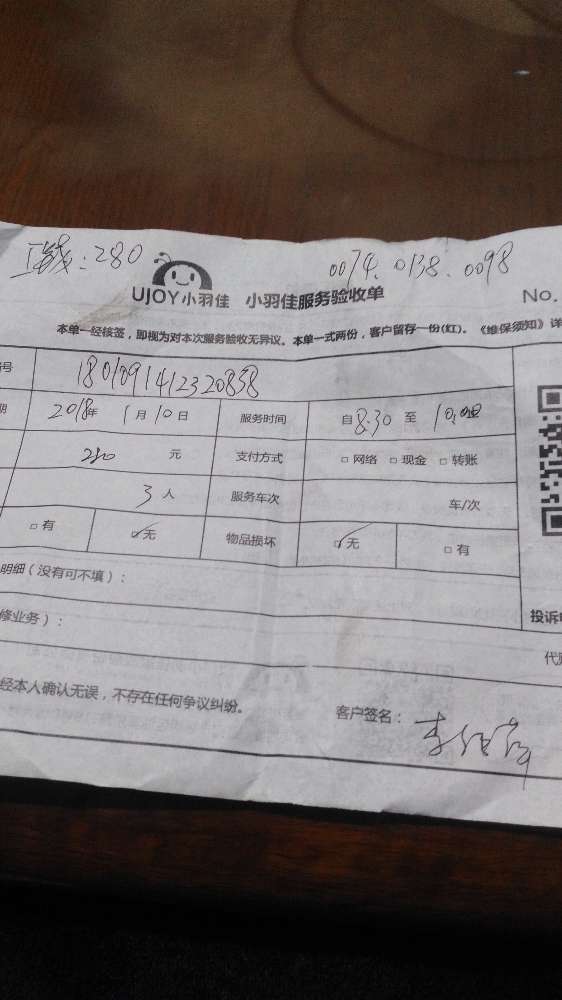 280
0074.0138.0098
UJOY小羽佳 小羽佳服务验收单
No.
本单一经核签，即视为对本次服务验收无异议。本单一式两份，客户留存一份(红)。《维保须知》详
号 1801091412320858
期 2018年 1月10日 服务时间 自8:30 至 10:00
280 元 支付方式 □网络 □现金 □转账
3人 服务车次 车/次
□有 ☑无 物品损坏 ☑无 □有
明细（没有可不填）：
修业务）：
投诉
代
经本人确认无误，不存在任何争议纠纷。
客户签名：